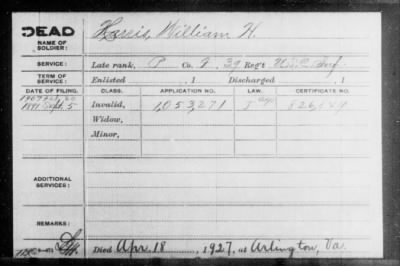 DEAD
NAME OF SOLDIER: Harris, William H.
SERVICE: Late rank, P Co. 39 Reg't
TERM OF SERVICE: Enlisted , 1 Discharged , 1
DATE OF FILING. CLASS. APPLICATION NO. LAW. CERTIFICATE NO.
1891 Sept. 5 Invalid, 1,053,271
Widow,
Minor,
ADDITIONAL SERVICES:
REMARKS:
Died Apr. 18, 1927, at Arlington, Va.